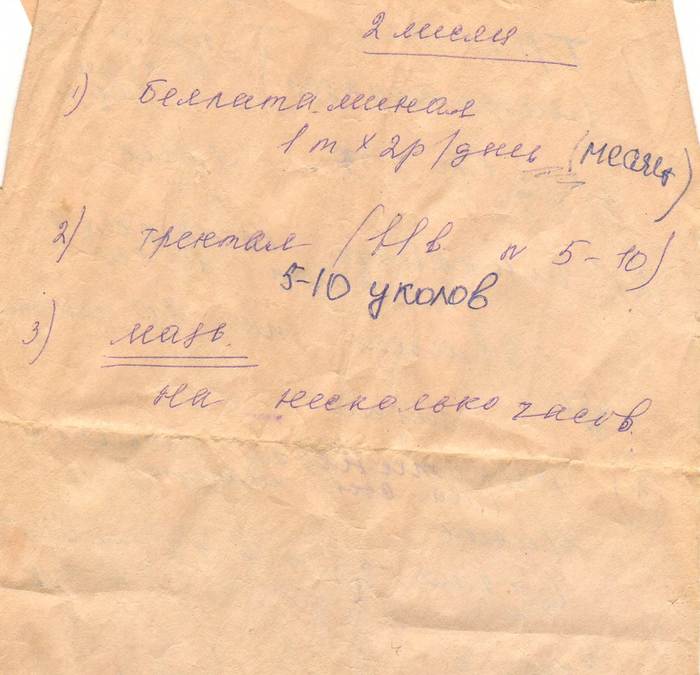 2 листы
1) Беллатаминал
1 т × 2р/день (месяц)
2) трентал (в/в N 5-10)
5-10 уколов
3) мазь.
на несколько часов.